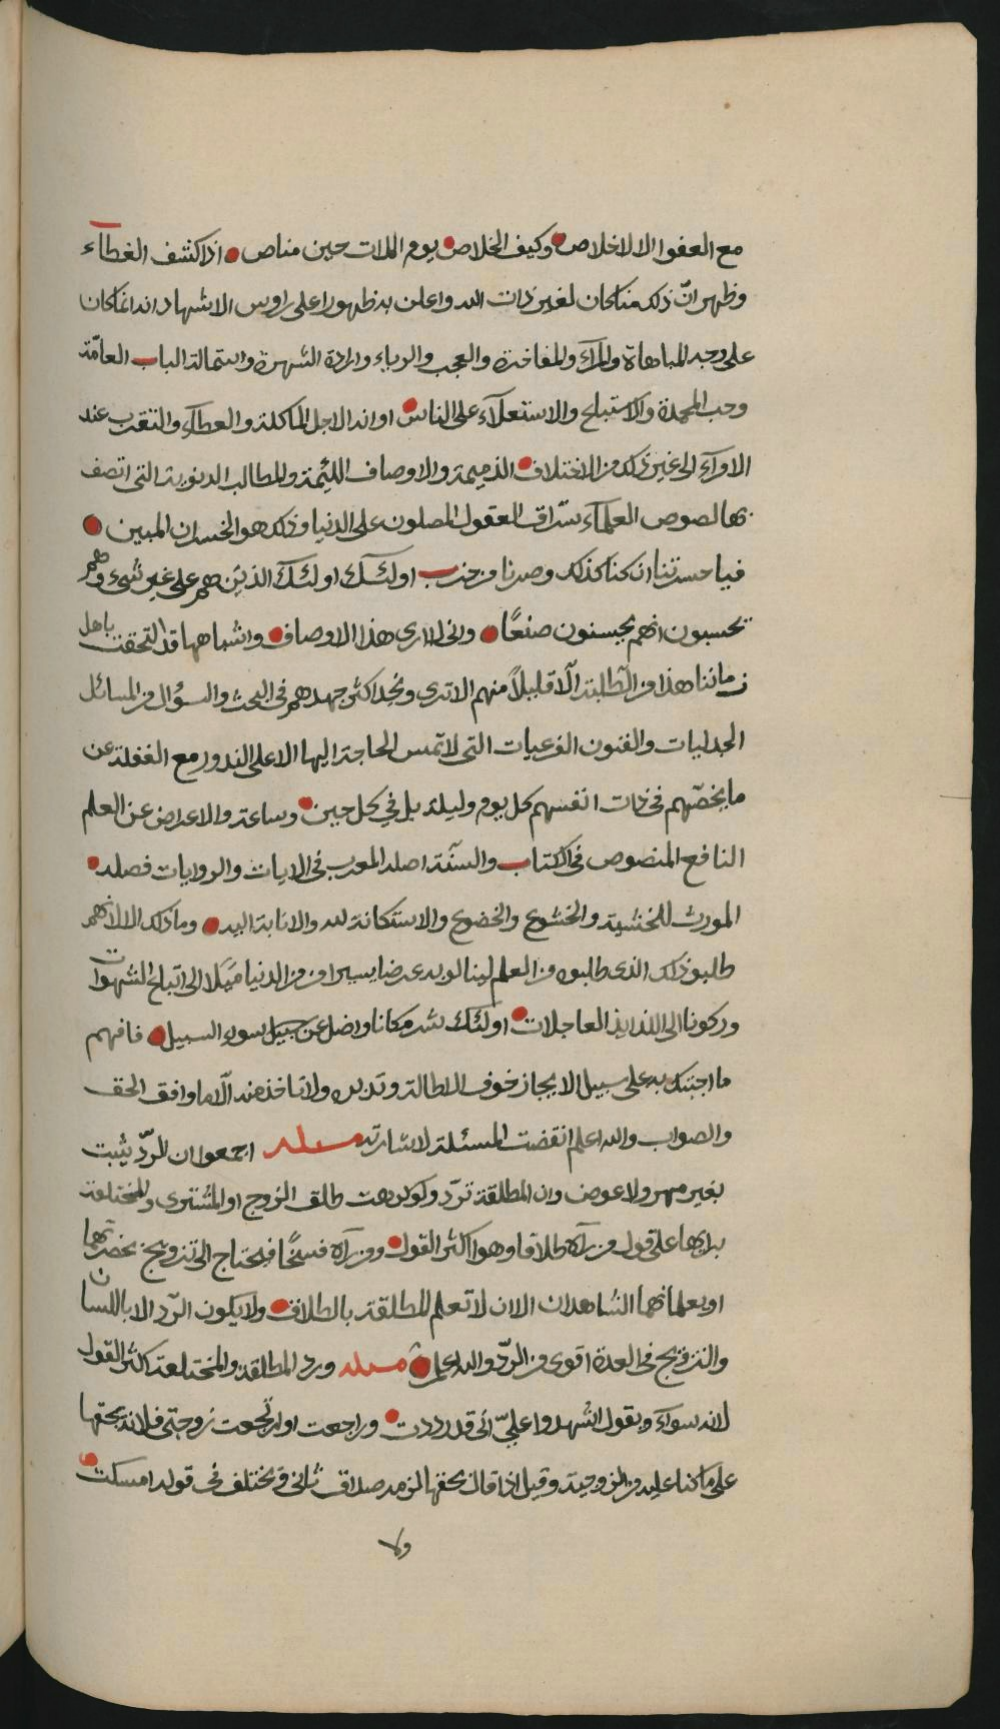 مع العفو الا لاخلاص وكيف الخلاص يوم اللات حين مناص اذا كشف الغطآء
وظهر انّ ذلك مناكان لغير ذات الله واعلن به ظهورا على راوس الاشهاد انه انما كان
على وجه المباهاة والمرآء والمفاخرة والعجب والرياء وارادة الشهرة واستمالة الباب العامّة
وحب المحمدة والاستعلآء على الناس او انه لاجل الماكلة والعطآء والتقرب عند
الامرآء الى غير ذلك من الاختلاف الذميمة والاوصاف اللئيمة والمطالب الدنوية التى اتصف
بها لصوص العلمآء سرّاق العقول المصلون على الدنيا وذلك هو الخسران المبين
فيا حسرتنا ان كنا كذلك وصرنا من حزب اولئك اولئك الذين هم على غير شىء وهم
يحسبون انهم يحسنون صنعًا وانى لا ارى هذا الاوصاف واشباهها قد التحقت باهل
زماننا هذا من الطلبة الّا قليلاً منهم الا ترى ونجد اكثر جهدهم فى البحث والسؤال من المسائل
الجدليات والفنون الفرعيات التى لا تمس الحاجة اليها الا على الندور مع الغفلة عن
ما يخصّهم فى ذات انفسهم كل يوم وليلة بل في كل حين وساعة والاعراض عن العلم
النافع المنصوص فى الكتاب والسنّة اصله المعرب فى الايات والروايات فصله
المورث للخشية والخشوع والخضوع والاستكانة لله والانابة اليه وما ذلك الا لانهم
طلبو ذلك الذى طلبوه من العلم لينالو به عرضا يسيرا من الدنيا ميلا الى اتباع الشهوات
وركونا الى اللذايذ العاجلات اولئك شر مكانا واضل عن سبيل سوء السبيل فافهم
ما اجبتك به على سبيل الايجاز خوف الاطالة وتدبره ولا تاخذ منه الّا ما وافق الحق
والصواب والله اعلم انقضت المسئلة لاشارته مسئلة اجمعوا ان الردّ يثبت
بغير مهر ولا عوض وان المطلقة تردّ ولو كرهت طلق الزوج او المشترى والمختلعة
برايها على قول من رآه طلاقا وهو اكثر القول ومن رآه فسخًا فيحتاج الى تزويج بحضرتهما
او يعلمانهما الشاهدان الان لا تعلم المطلقة بالطلاق ولا يكون الرّد الا باللسان
والتزويج فى العدة اقوى من الردّ والله اعلم مسئلة ورد المطلقة والمختلعة كثر القول
لانه سوآء ويقول اشهدوا عليّ انى قد رددت وراجعت او ارتجعت زوجتى فلانة بحقها
على ما كنا عليه من الزوجية وقيل اذا قال بحقها لزمه صداق ثانى ويختلف فى قوله امسكت
ولا